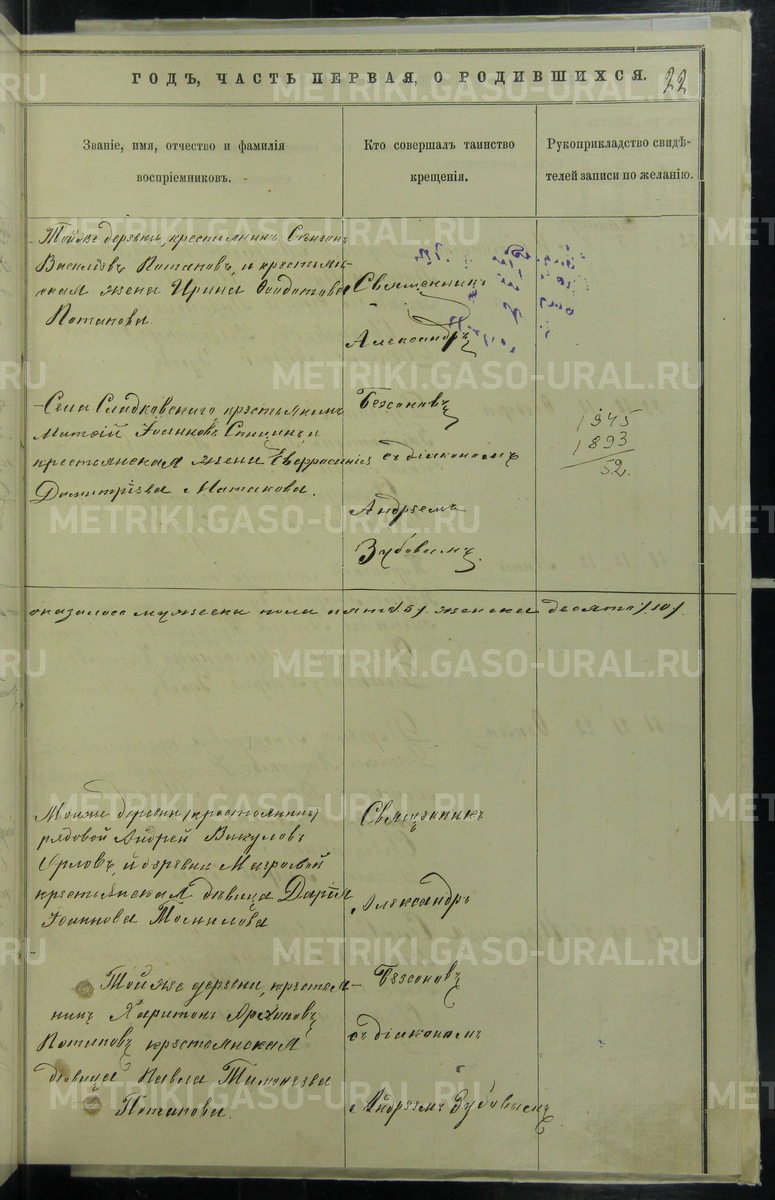 ГОДЪ, ЧАСТЬ ПЕРВАЯ, О РОДИВШИХСЯ. 22
Званіе, имя, отчество и фамилія
воспріемниковъ.
Кто совершалъ таинство
крещенія.
Рукоприкладство свидѣ-
телей записи по желанію.
Тойже деревни, крестьянинъ
Василіевъ Потаповъ, и крестьян-
ская жена Ирина Ѳеодотова
Потапова.
Священникъ
Александръ
Села Сладковскаго крестьянинъ
Матѳій Іоанновъ Спицинъ, и
крестьянская жена Евфросинія
Димитріева Матакова.
Безсоновъ
съ діакономъ
Андреемъ
Зубовымъ.
1945
1893
52.
оказалось мужеска пола пять /5/ женска десять /10/
Тойже деревни /крестьянинъ/
рядовой Андрей Викуловъ
Орловъ, и деревни
крестьянская дѣвица Дарія
Іоаннова
Священникъ
Александръ
Тойже деревни, крестья-
нинъ Харитонъ Архиповъ
Потаповъ крестьянская
дѣвица Павла Тимоѳеева
Потапова.
Безсоновъ
съ діакономъ
Андреемъ Зубовымъ
METRIKI.GASO-URAL.RU